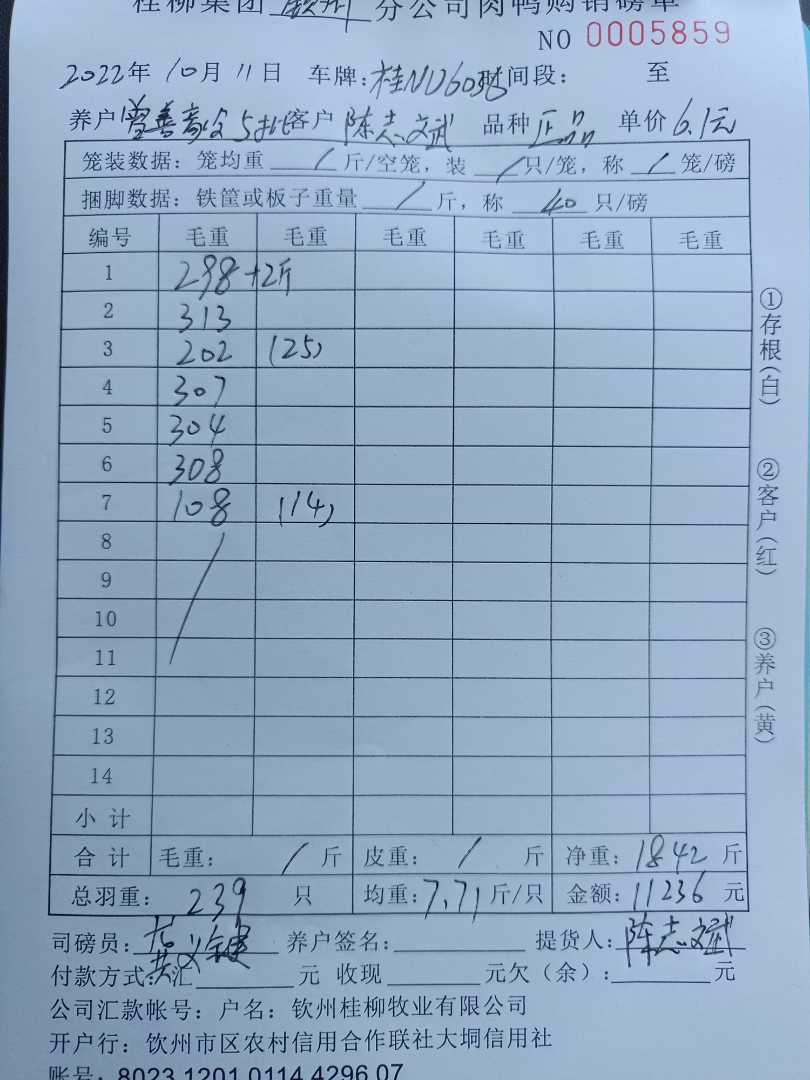 桂柳集团 钦州 分公司肉鸭购销磅单
NO 0005859
2022年 10月 11日 车牌: 桂N 时间段: 至
养户 5批 客户 陈志斌 品种 正品 单价 6.1元
笼装数据: 笼均重 / 斤/空笼, 装 / 只/笼, 称 / 笼/磅
捆脚数据: 铁筐或板子重量 / 斤, 称 40 只/磅
编号 毛重 毛重 毛重 毛重 毛重 毛重
1 298+2斤
2 313
3 202 (25)
4 307
5 304
6 308
7 108 (14)
8
9
10
11
12
13
14
小 计
合 计 毛重: / 斤 皮重: / 斤 净重: 1842 斤
总羽重: 239 只 均重: 7.71 斤/只 金额: 11236 元
司磅员: 养户签名: 提货人: 陈志斌
付款方式: 汇 元 收现 元欠(余): 元
公司汇款帐号: 户名: 钦州桂柳牧业有限公司
开户行: 钦州市区农村信用合作联社大垌信用社
账号: 8023 1201 0114 4296 07
①存根(白)
②客户(红)
③养户(黄)